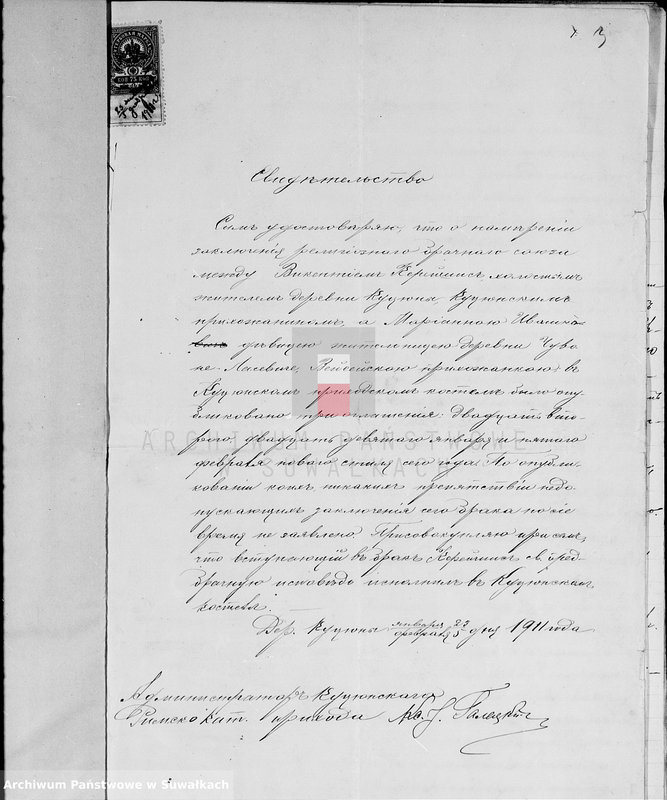 3
КОП 75 КОП
Свидѣтельство
Симъ удостовѣряю, что о намѣреніи
заключенія религіознаго брачнаго союза
между Викентіемъ Керейшисъ, холостымъ
жителемъ деревни Куцюны Куцюнскимъ
прихожаниномъ, а Маріанною Ивашко-
дѣвицею жительницею деревни
Вейсейскою прихожанкою въ
Куцюнскомъ приходскомъ костелѣ было опу-
бликовано при оглашенія: двадцать вто-
рого двадцать девятаго января и пятаго
февраля новаго стиля сего года. По опубли-
кованіи коихъ никакихъ препятствій недо-
пускающихъ заключенія сего брака по сіе
время не заявлено. Присовокупляю при семъ,
что вступающій въ бракъ Керейшисъ св. пред-
брачную исповѣдь исполнилъ въ Куцюнскомъ
костелѣ.
Дер. Куцюны января 23 февраля 5 дня 1911 года
Администраторъ Куцюнскаго
Римско кат. прихода Кс.
ARCHIWUM PAŃSTWOWE
SUWAŁKACH
Archiwum Państwowe w Suwałkach